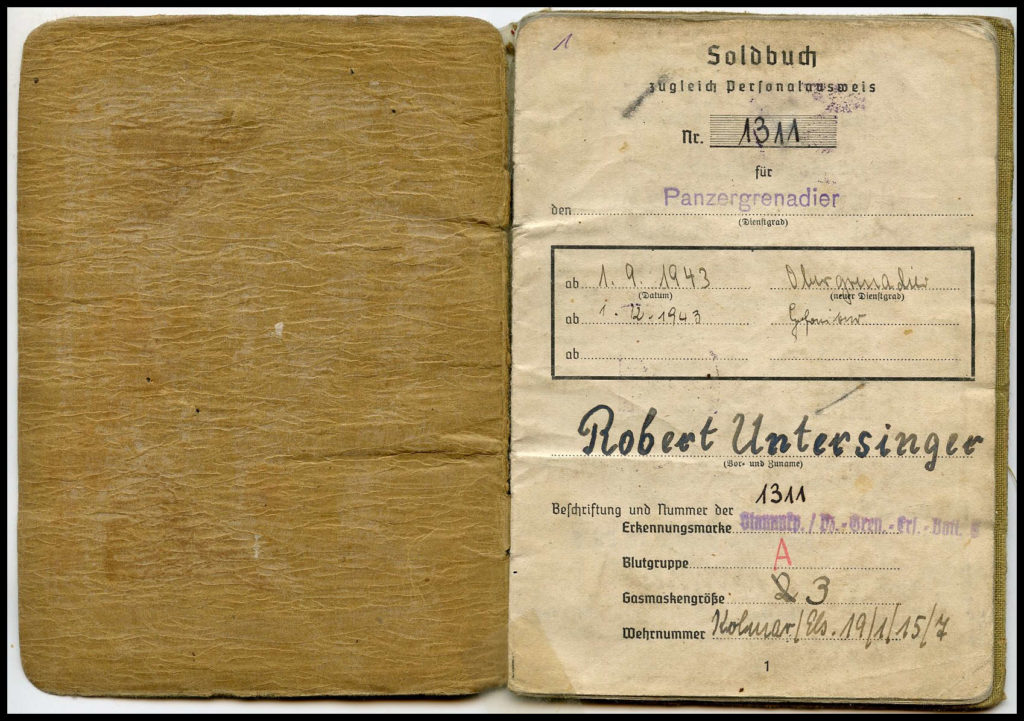 1
Soldbuch
zugleich Personalausweis
Nr. 1311
für
den Panzergrenadier
(Dienstgrad)
ab 1. 9. 1943 Obergrenadier
(Datum) (neuer Dienstgrad)
ab 1. 12. 1943
ab
Robert Untersinger
(Vor- und Zuname)
1311
Beschriftung und Nummer der
Erkennungsmarke Stammkp. / Pz.-Gren.-Ers.-Batl.
Blutgruppe A
Gasmaskengröße 2 3
Wehrnummer Kolmar/Els. 19/1/15/7
1